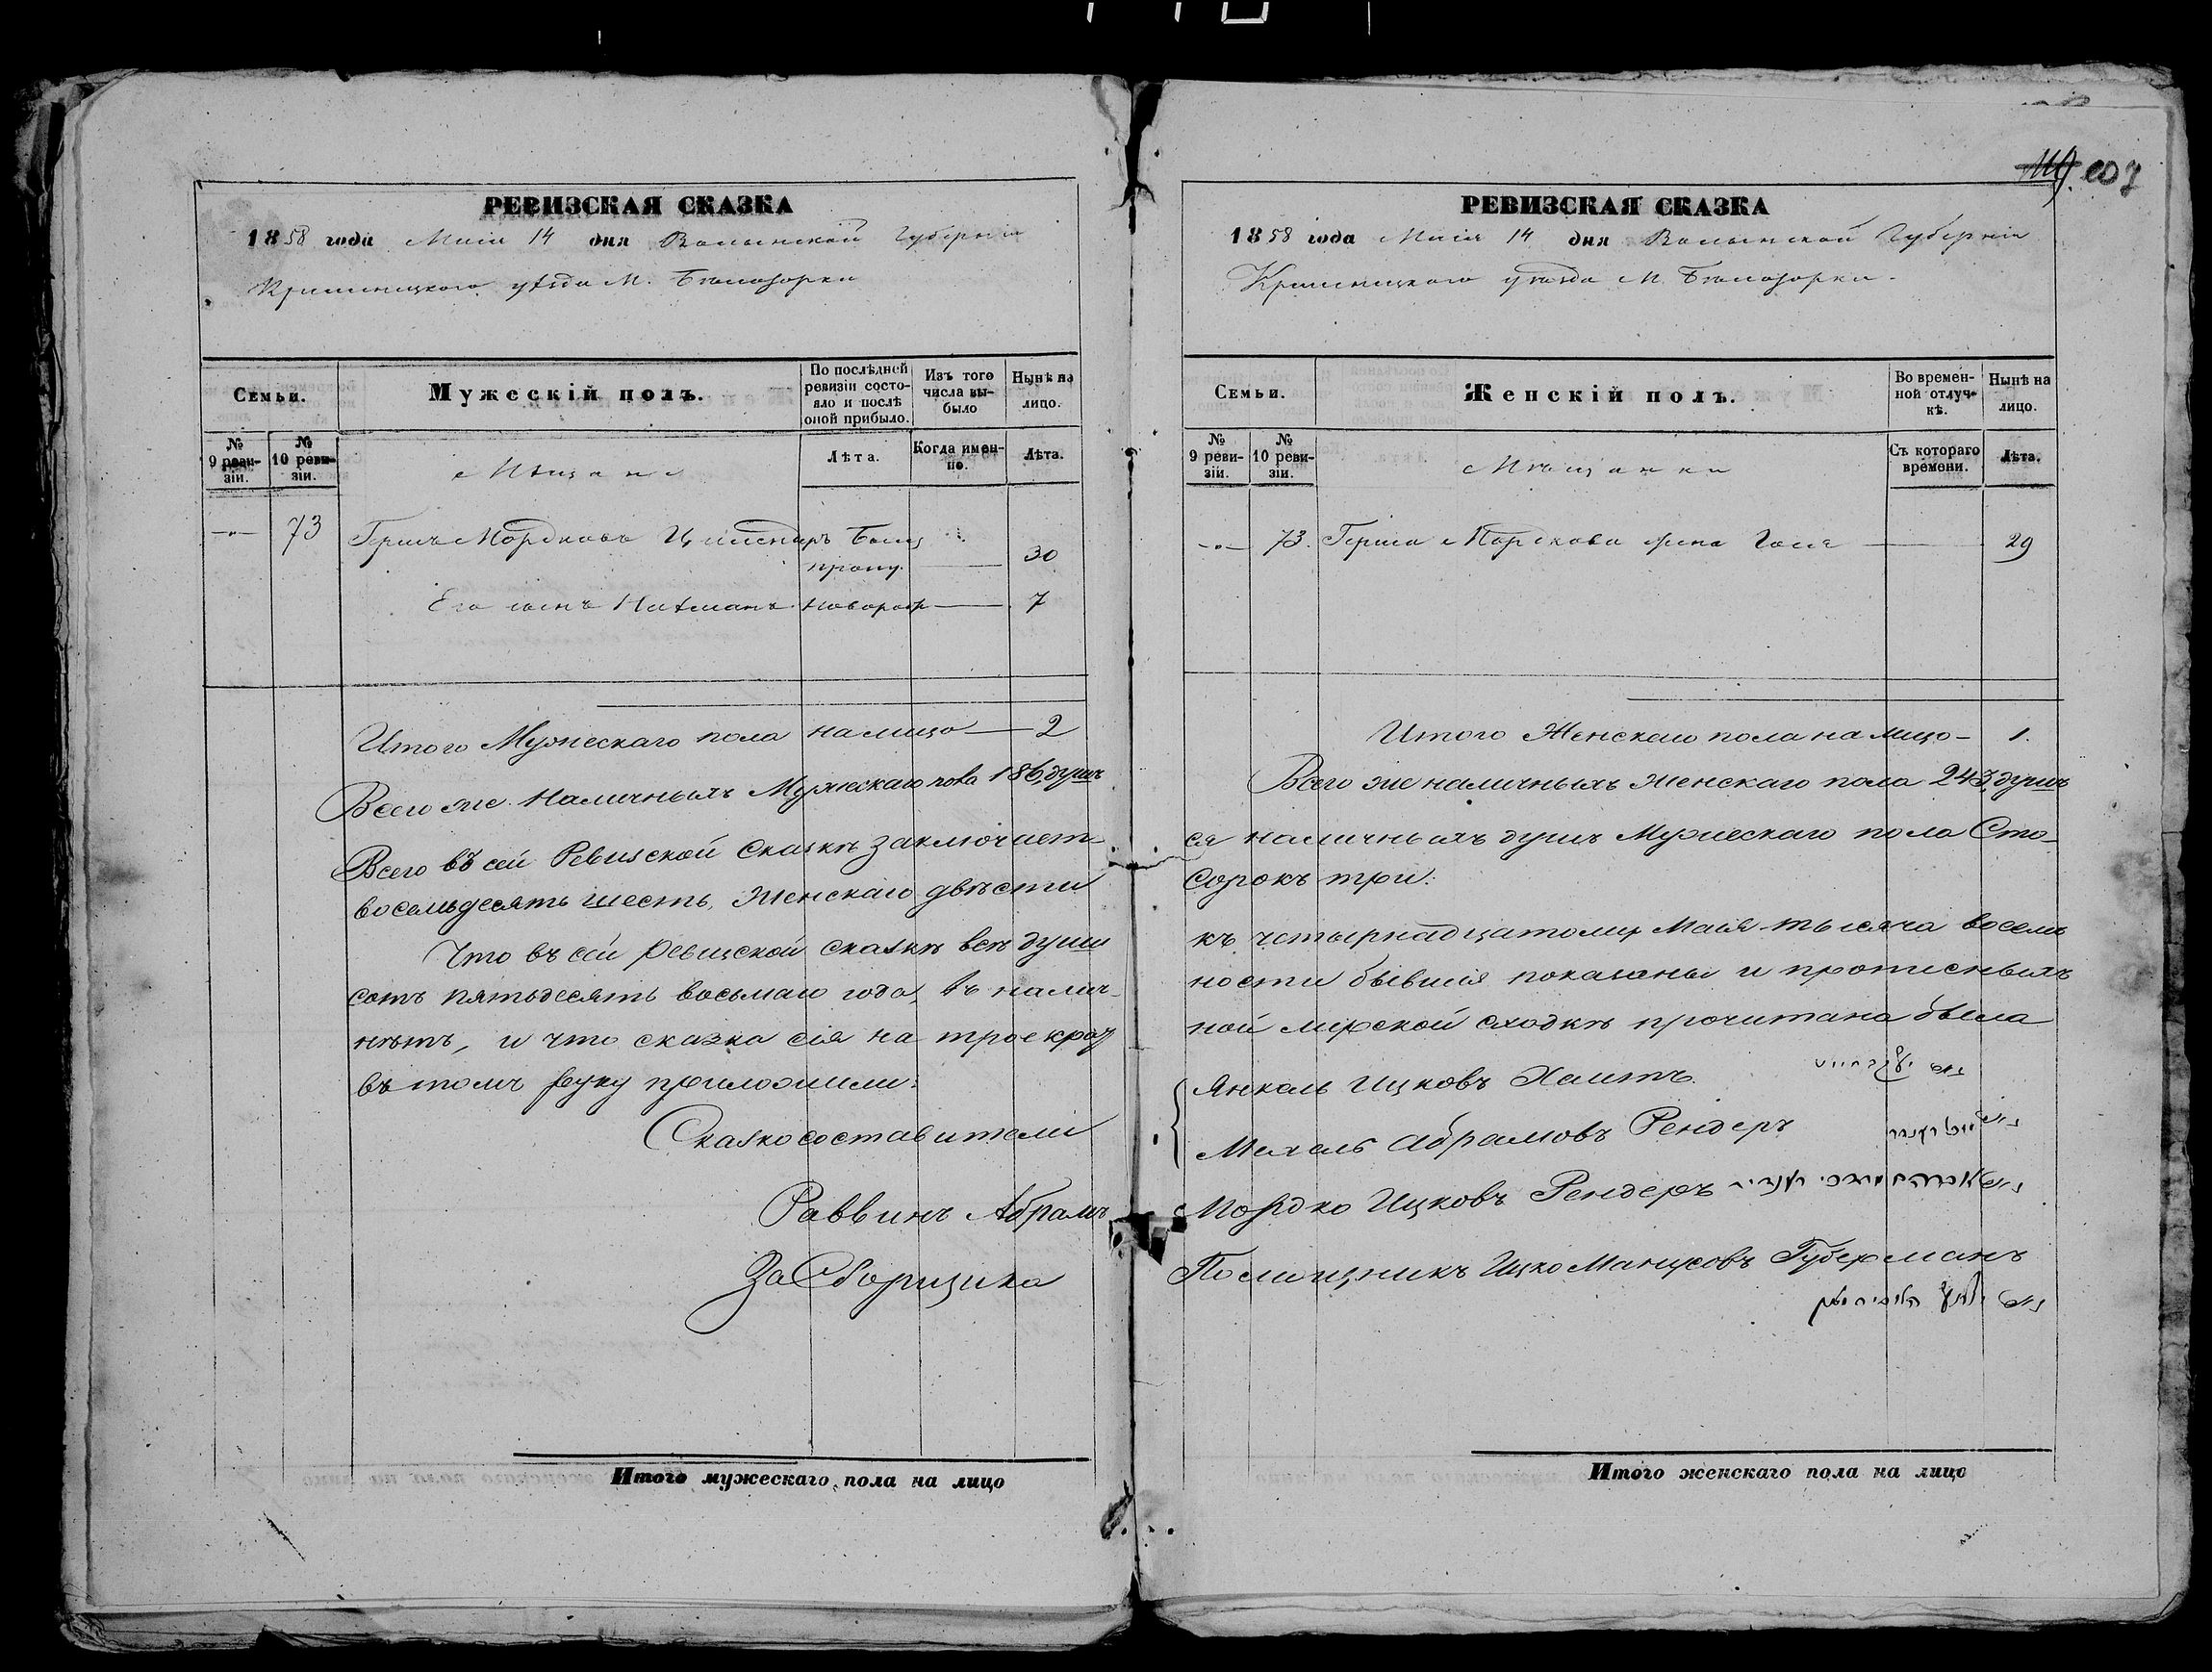 607
РЕВИЗСКАЯ СКАЗКА
1858 года Маія 14 дня Волынской Губерніи
Кременецкого уѣзда М. Бѣлозорки
Семьи.
Мужескій полъ.
По послѣдней ревизіи состояло и послѣ оной прибыло.
Изъ того числа выбыло
Нынѣ на лицо.
№ 9 ревизіи.
№ 10 ревизіи.
Мѣщане
Лѣта.
Когда именно.
Лѣта.
73 Гершъ Мордковъ
пропу. 30
Его сынъ Нахманъ новорож 7
Итого Мужескаго пола на лицо — 2
Всего же наличныхъ Мужескаго пола 186 душъ
Всего въ сей Ревизской Сказкѣ заключает-
восемьдесятъ шесть, Женскаго двѣсти
Что въ сей Ревизской сказкѣ всѣ души
сотъ пятьдесятъ восьмаго года, въ налич-
нѣтъ, и что сказка сія на троекрат
въ томъ руку приложили:
Сказкосоставители
Раввинъ Абрамъ
За Сборщика
Итого мужескаго пола на лицо
РЕВИЗСКАЯ СКАЗКА
1858 года Маія 14 дня Волынской Губерніи
Кременецкого уѣзда М. Бѣлозорки.
Семьи.
Женскій полъ.
Во временной отлучкѣ.
Нынѣ на лицо.
№ 9 ревизіи.
№ 10 ревизіи.
Мѣщанки
Съ котораго времени.
Лѣта.
73. Герша Мордкова жена 29
Итого Женскаго пола на лицо — 1.
Всего же наличныхъ Женскаго пола 243 душъ
ся наличныхъ душъ Мужескаго пола Сто-
сорокъ три.
къ четырнадцатому Маія тысяча восемь
ности бывшія показаны и прописныхъ
ной мирской сходкѣ прочитана была
Янкель Ицковъ
Мехель Абрамовъ Рендеръ
Мордко Ицковъ Рендеръ
Помощникъ Ицко Манусовъ Губерманъ
Итого женскаго пола на лицо